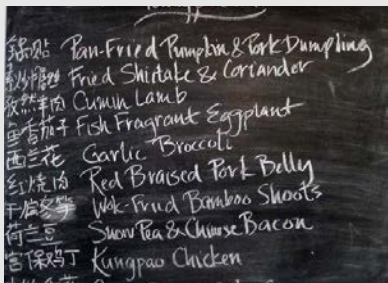 锅贴 Pan-Fried Pumpkin & Pork Dumpling
Fried Shitake & Coriander
孜然羊肉 Cumin Lamb
鱼香茄子 Fish Fragrant Eggplant
西兰花 Garlic Broccoli
红烧肉 Red Braised Pork Belly
干煸冬笋 Wok Fried Bamboo Shoots
荷兰豆 Snow Pea & Chinese Bacon
宫保鸡丁 Kungpao Chicken